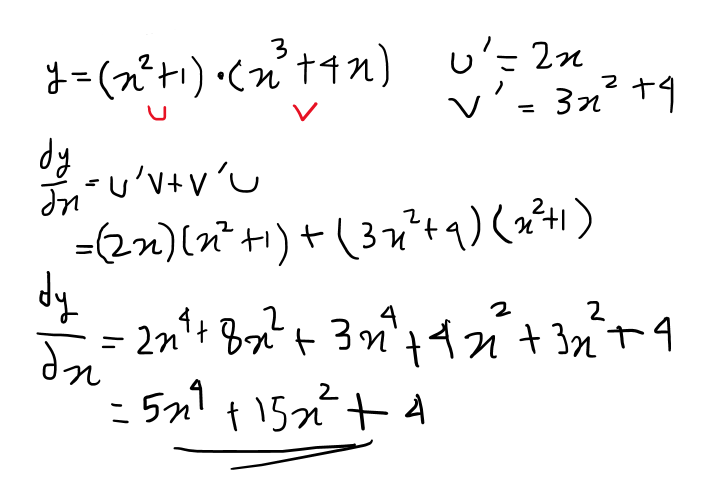 y=(x²+1)·(x³+4x) u'=2x
u v v'=3x²+4
dy/dx=u'v+v'u
=(2x)(x²+1)+(3x²+4)(x²+1)
dy/dx=2x⁴+8x²+3x⁴+4x²+3x²+4
=5x⁴+15x²+4